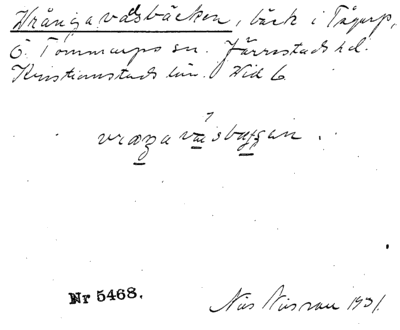 Wrångavadsbäcken, bäck i Tågarp,
Ö. Tommarps sn. Järrestads hd.
Kristianstads län. Vid 6
Nr 5468.
Nils Nilsson 1931.